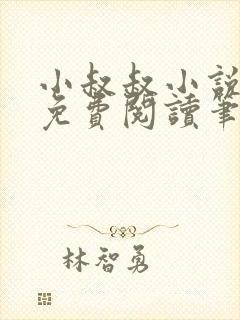 小叔叔小說
免費閱讀筆
林智勇